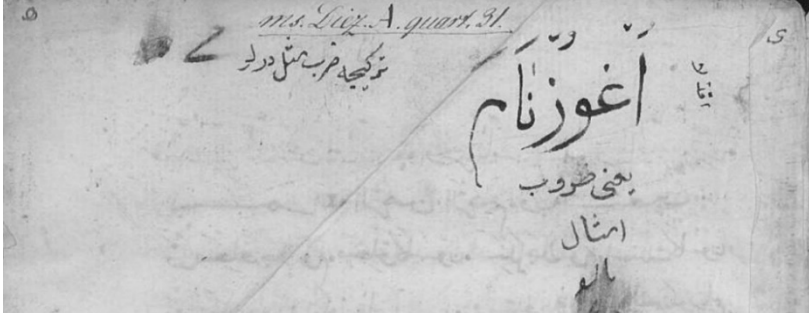 ms. Diez. A. quart. 31.
تركيجه ضرب مثل در لر
اغوزنام
يعنى ضروب
امثال